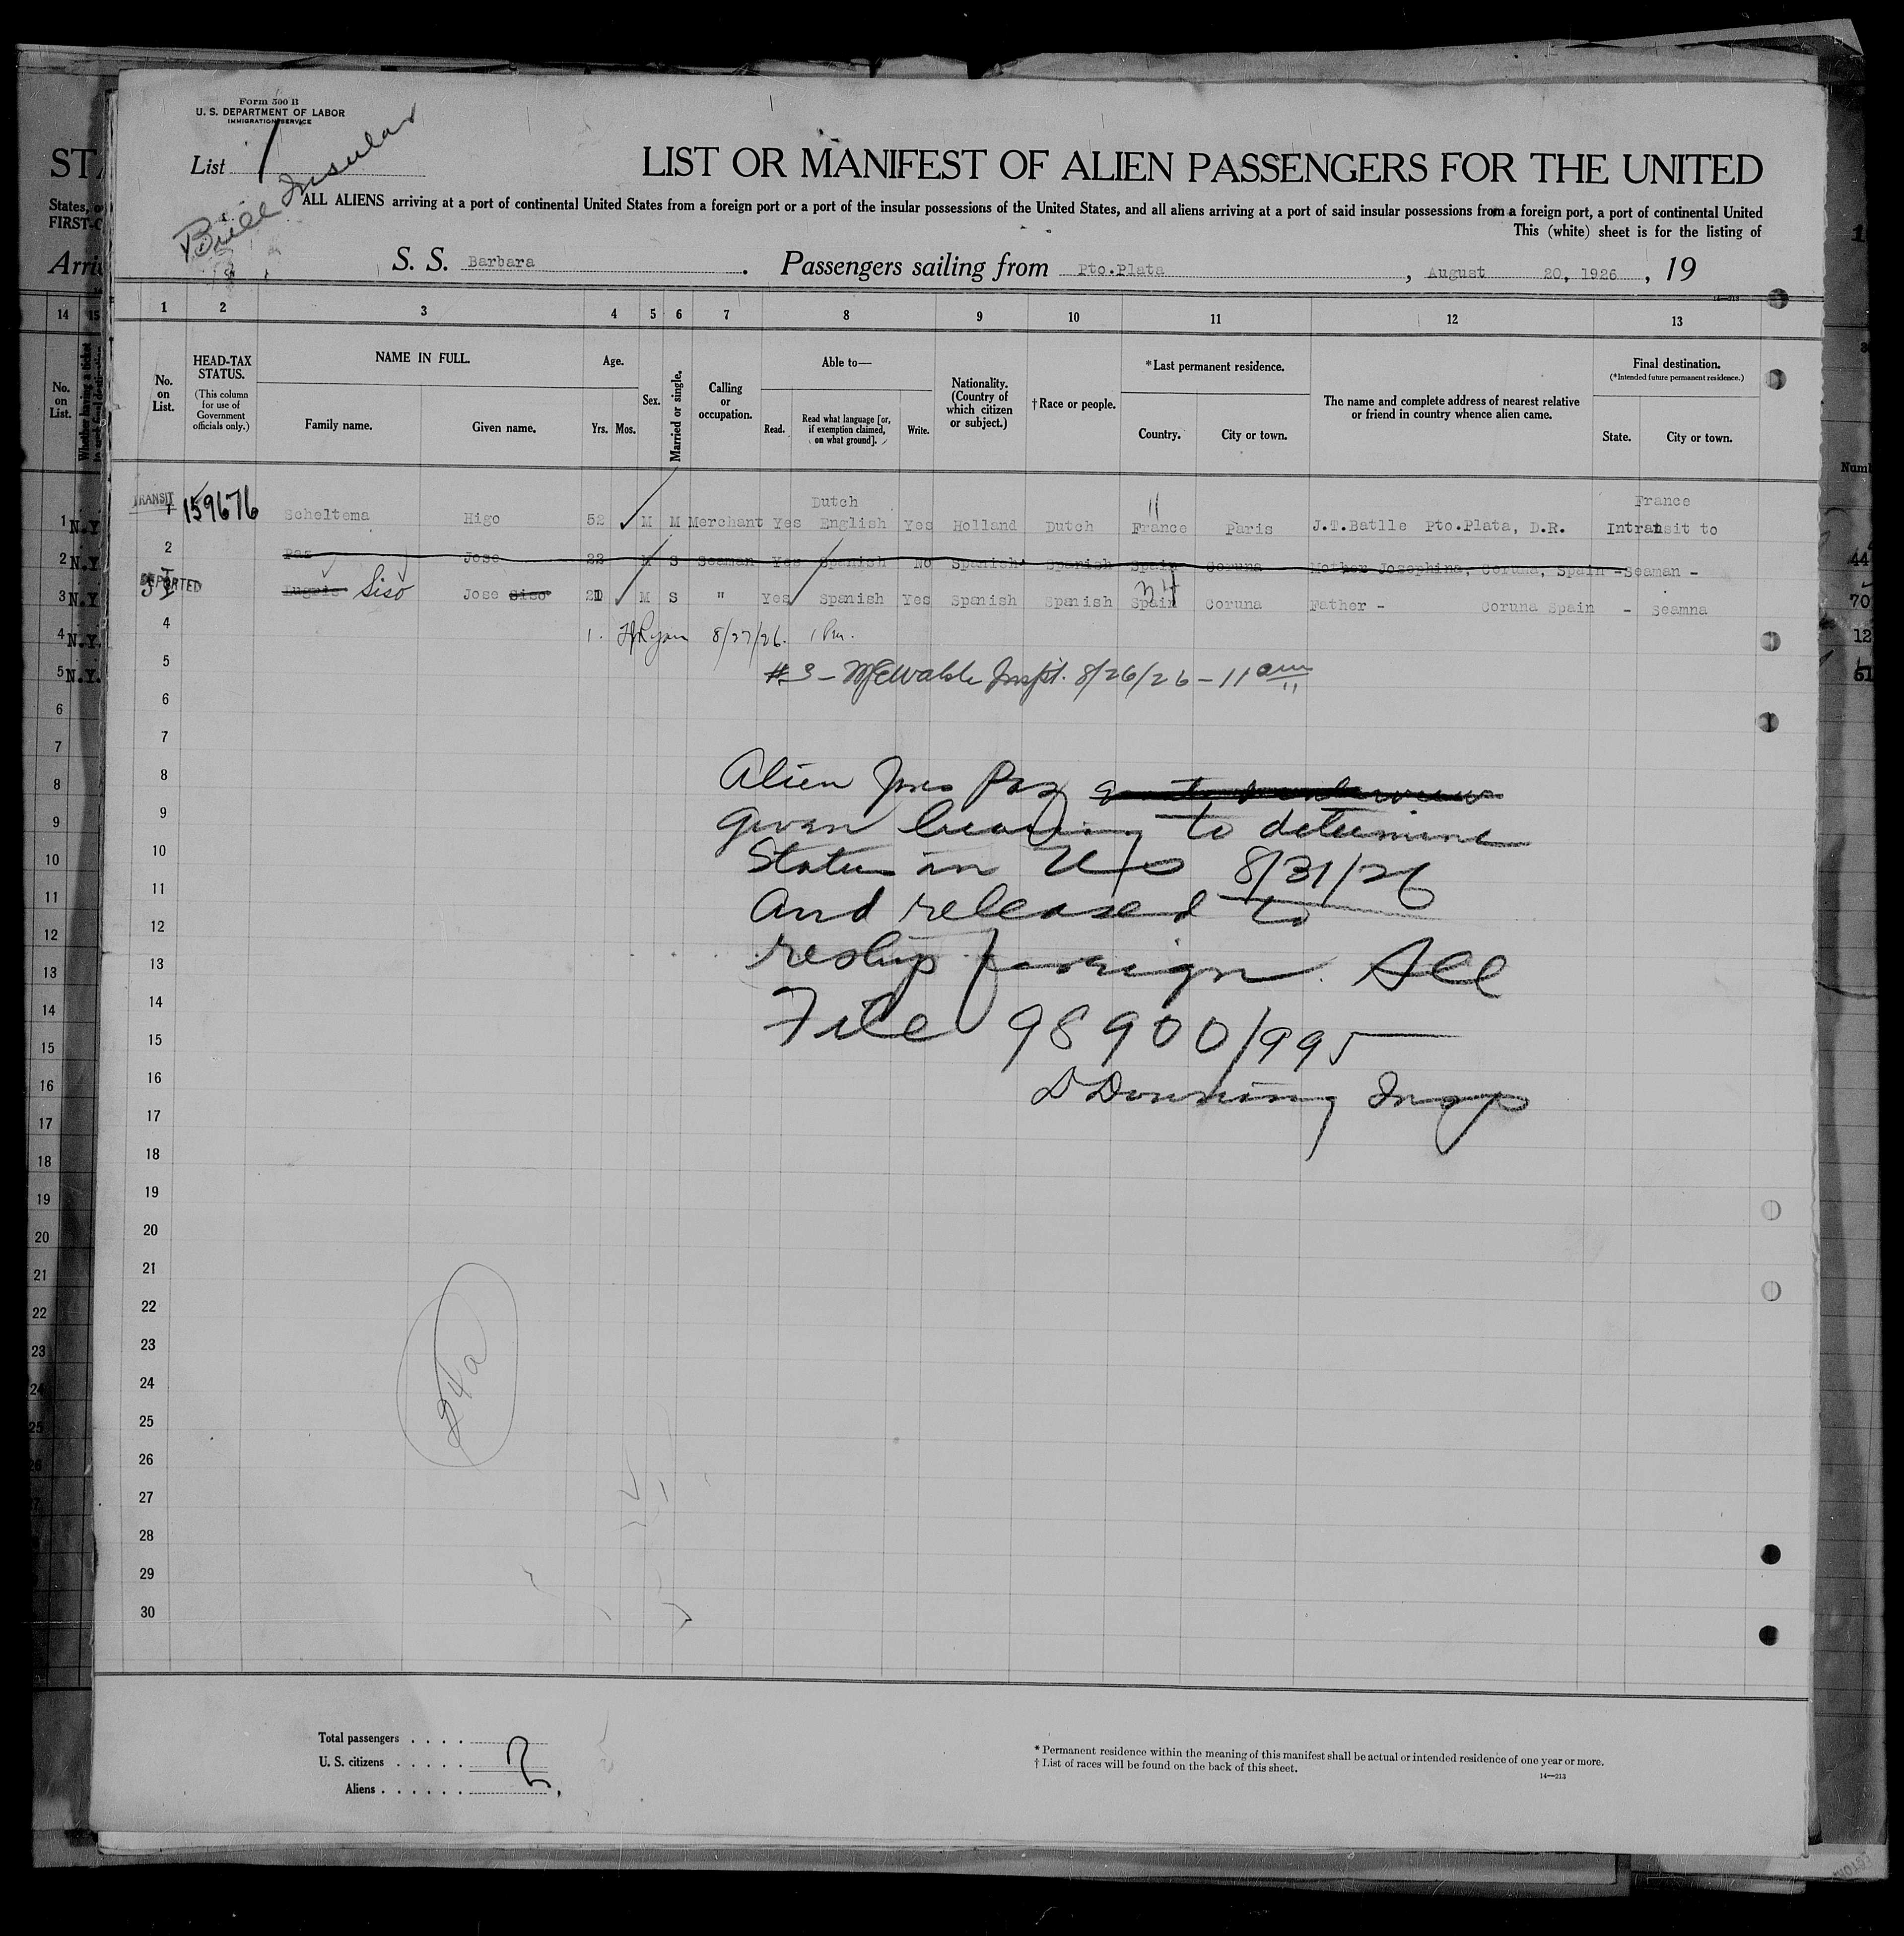 Form 500 B
U. S. DEPARTMENT OF LABOR
IMMIGRATION SERVICE
List 1
Bull Insular
LIST OR MANIFEST OF ALIEN PASSENGERS FOR THE UNITED
ALL ALIENS arriving at a port of continental United States from a foreign port or a port of the insular possessions of the United States, and all aliens arriving at a port of said insular possessions from a foreign port, a port of continental United
This (white) sheet is for the listing of
S. S. Barbara . Passengers sailing from Pto.Plata , August 20, 1926 , 19
1 2 3 4 5 6 7 8 9 10 11 12 13
No. on List.
HEAD-TAX STATUS.
(This column for use of Government officials only.)
NAME IN FULL.
Family name. Given name.
Age.
Yrs. Mos.
Sex.
Married or single.
Calling or occupation.
Able to—
Read. Read what language [or, if exemption claimed, on what ground]. Write.
Nationality. (Country of which citizen or subject.)
† Race or people.
* Last permanent residence.
Country. City or town.
The name and complete address of nearest relative or friend in country whence alien came.
Final destination.
(*Intended future permanent residence.)
State. City or town.
TRANSIT Dutch 11 France
1 N.Y 159676 Scheltema Higo 52 M M Merchant Yes English Yes Holland Dutch France Paris J.T.Batlle Pto.Plata, D.R. Intransit to
2 N.Y Paz Jose 22 M S Seaman Yes Spanish No Spanish Spanish Spain Coruna Mother Josephina, Coruna, Spain - Seaman -
DEPORTED
3 N.Y Siso Jose Siso 21 M S " Yes Spanish Yes Spanish Spanish Spain Coruna Father - Coruna Spain - Seamna
4 N.Y. 1. Ryan 8/27/26. 1 Pm.
5 N.Y. #3 - Inspt. 8/26/26 - 11 am
6
7
8 Alien Jose Paz
9 Given hearing to determine
10 Status in US 8/31/26
11 And released to
12
13 reship foreign. See
14 File 98900/995
15
16 D Downing Insp
17
18
19
20
21
22
23
24 24a
25
26
27
28
29
30
Total passengers . . . .
U. S. citizens . . . . . 2
Aliens . . . . . .
* Permanent residence within the meaning of this manifest shall be actual or intended residence of one year or more.
† List of races will be found on the back of this sheet.
14—213